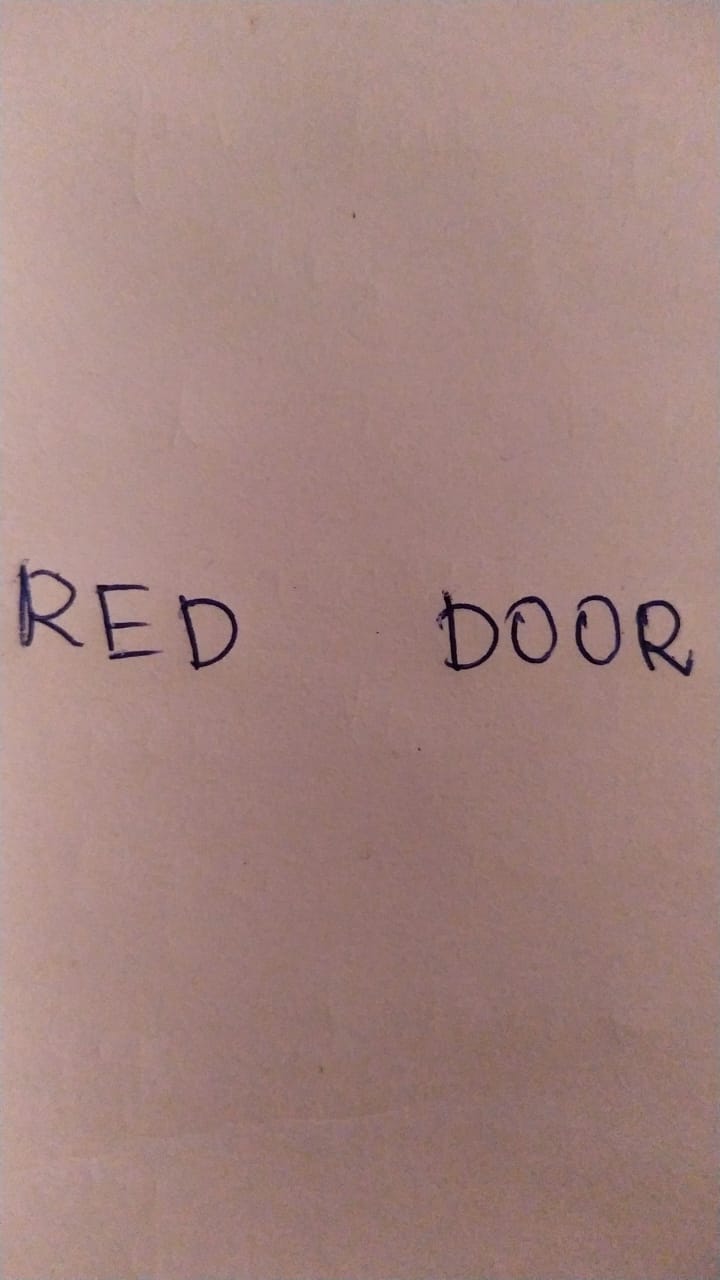 RED DOOR